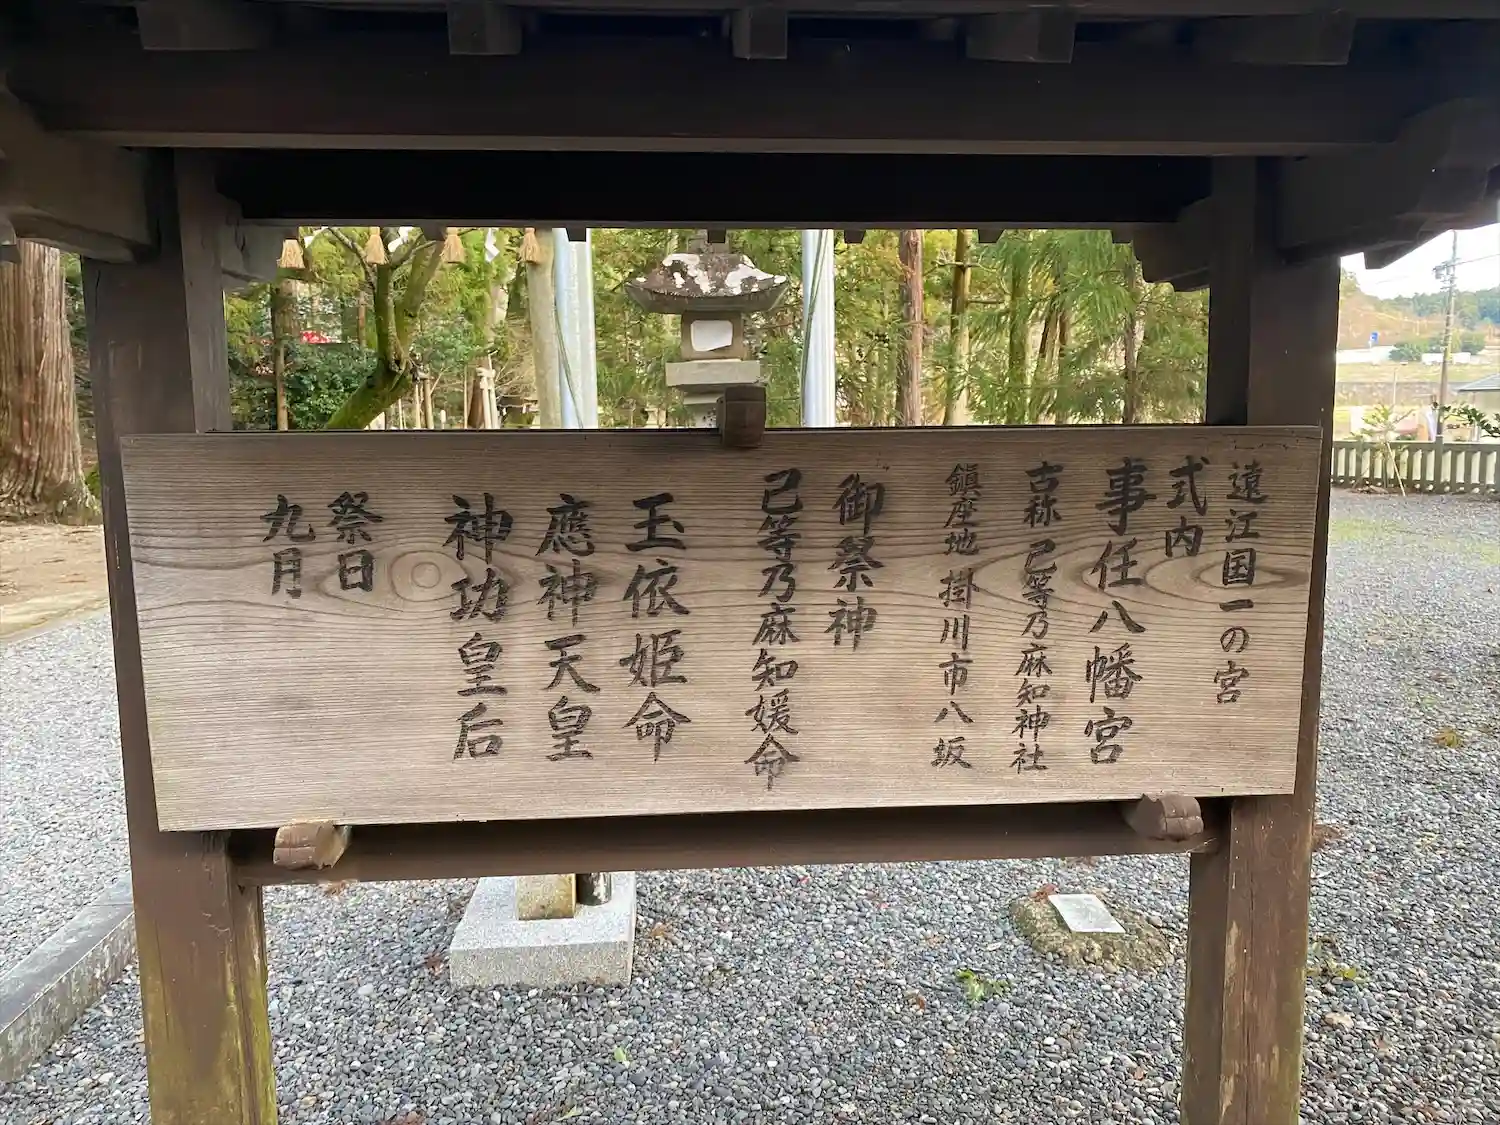 遠江国一の宮
式内
事任八幡宮
古称 已等乃麻知神社
鎮座地 掛川市八坂
御祭神
已等乃麻知媛命
玉依姫命
應神天皇
神功皇后
祭日
九月